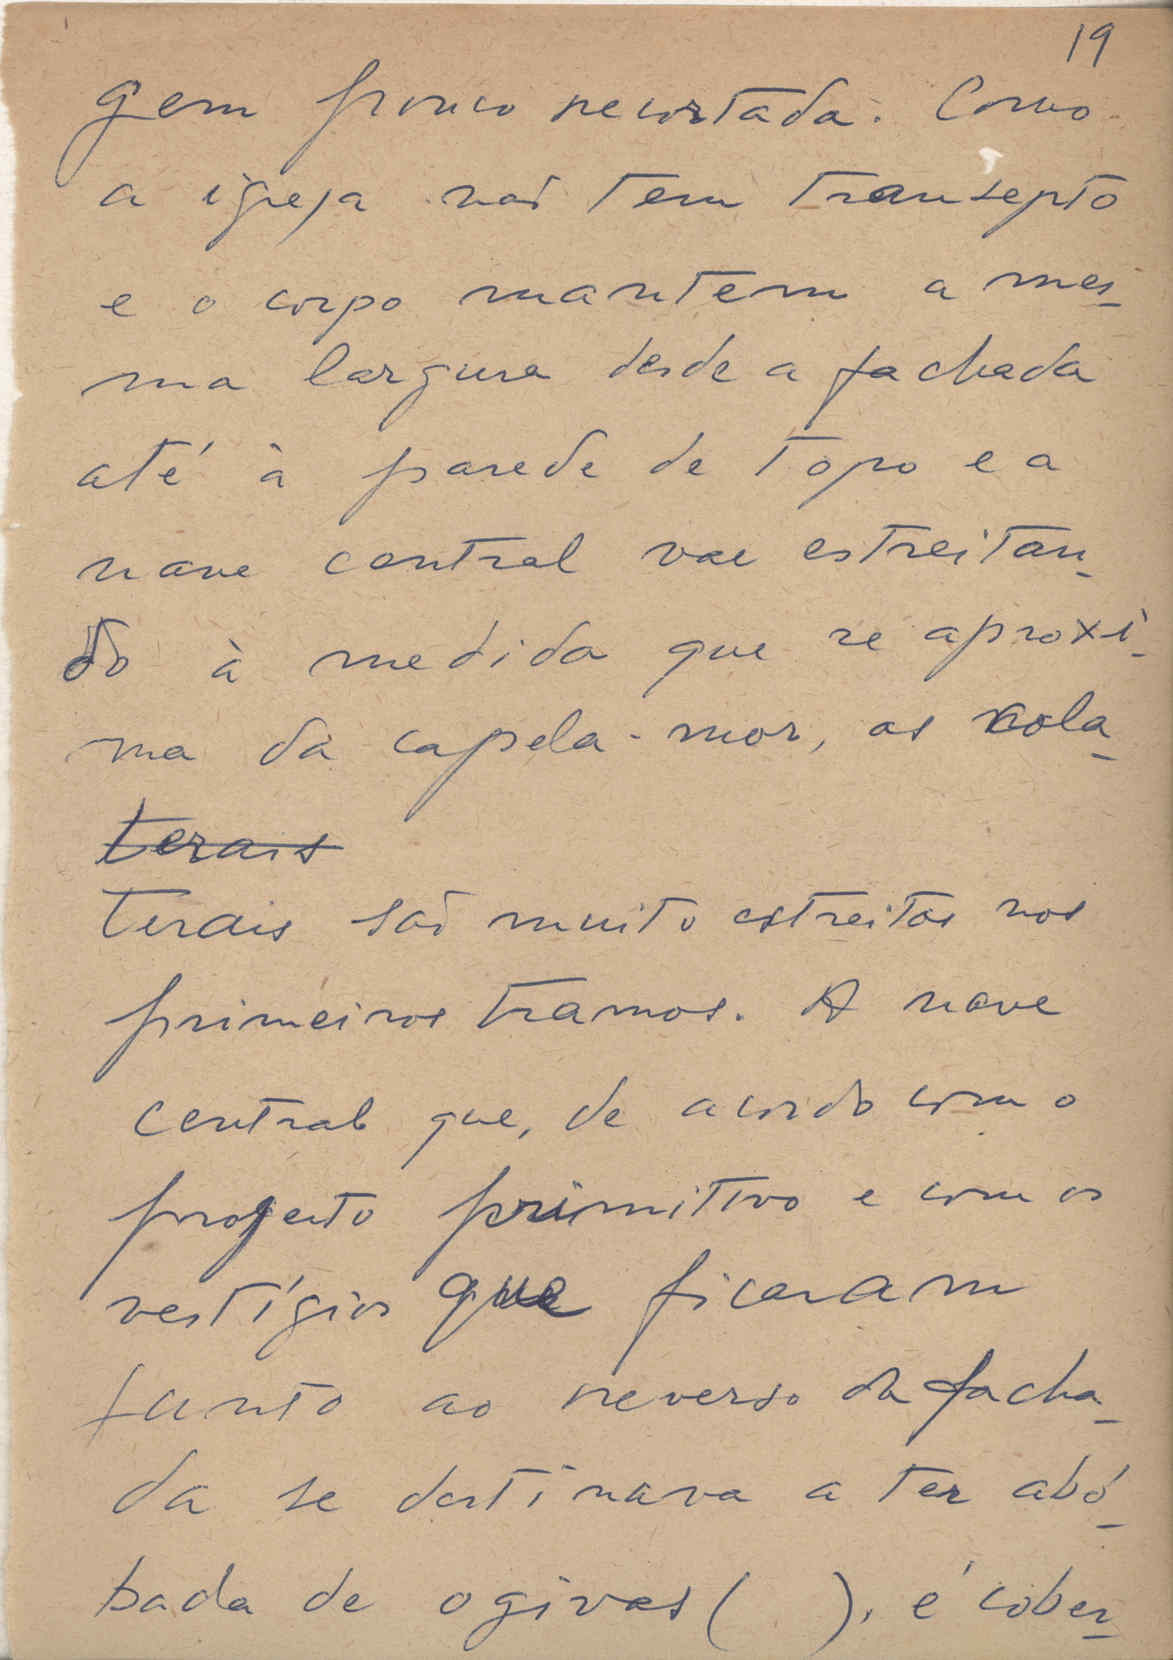 19
gem pouco recortada. Como
a igreja não tem transepto
e o corpo mantem a mes-
ma largura desde a fachada
até à parede de topo e a
nave central vae estreitan-
do à medida que se aproxi-
ma da capela-mor, as cola-
terais
terais são muito estreitas nos
primeiros tramos. A nave
central que, de acordo com o
projecto primitivo e com os
vestígios que ficaram
junto ao reverso da facha-
da se destinava a ter abó-
bada de ogivas ( ), é cober-